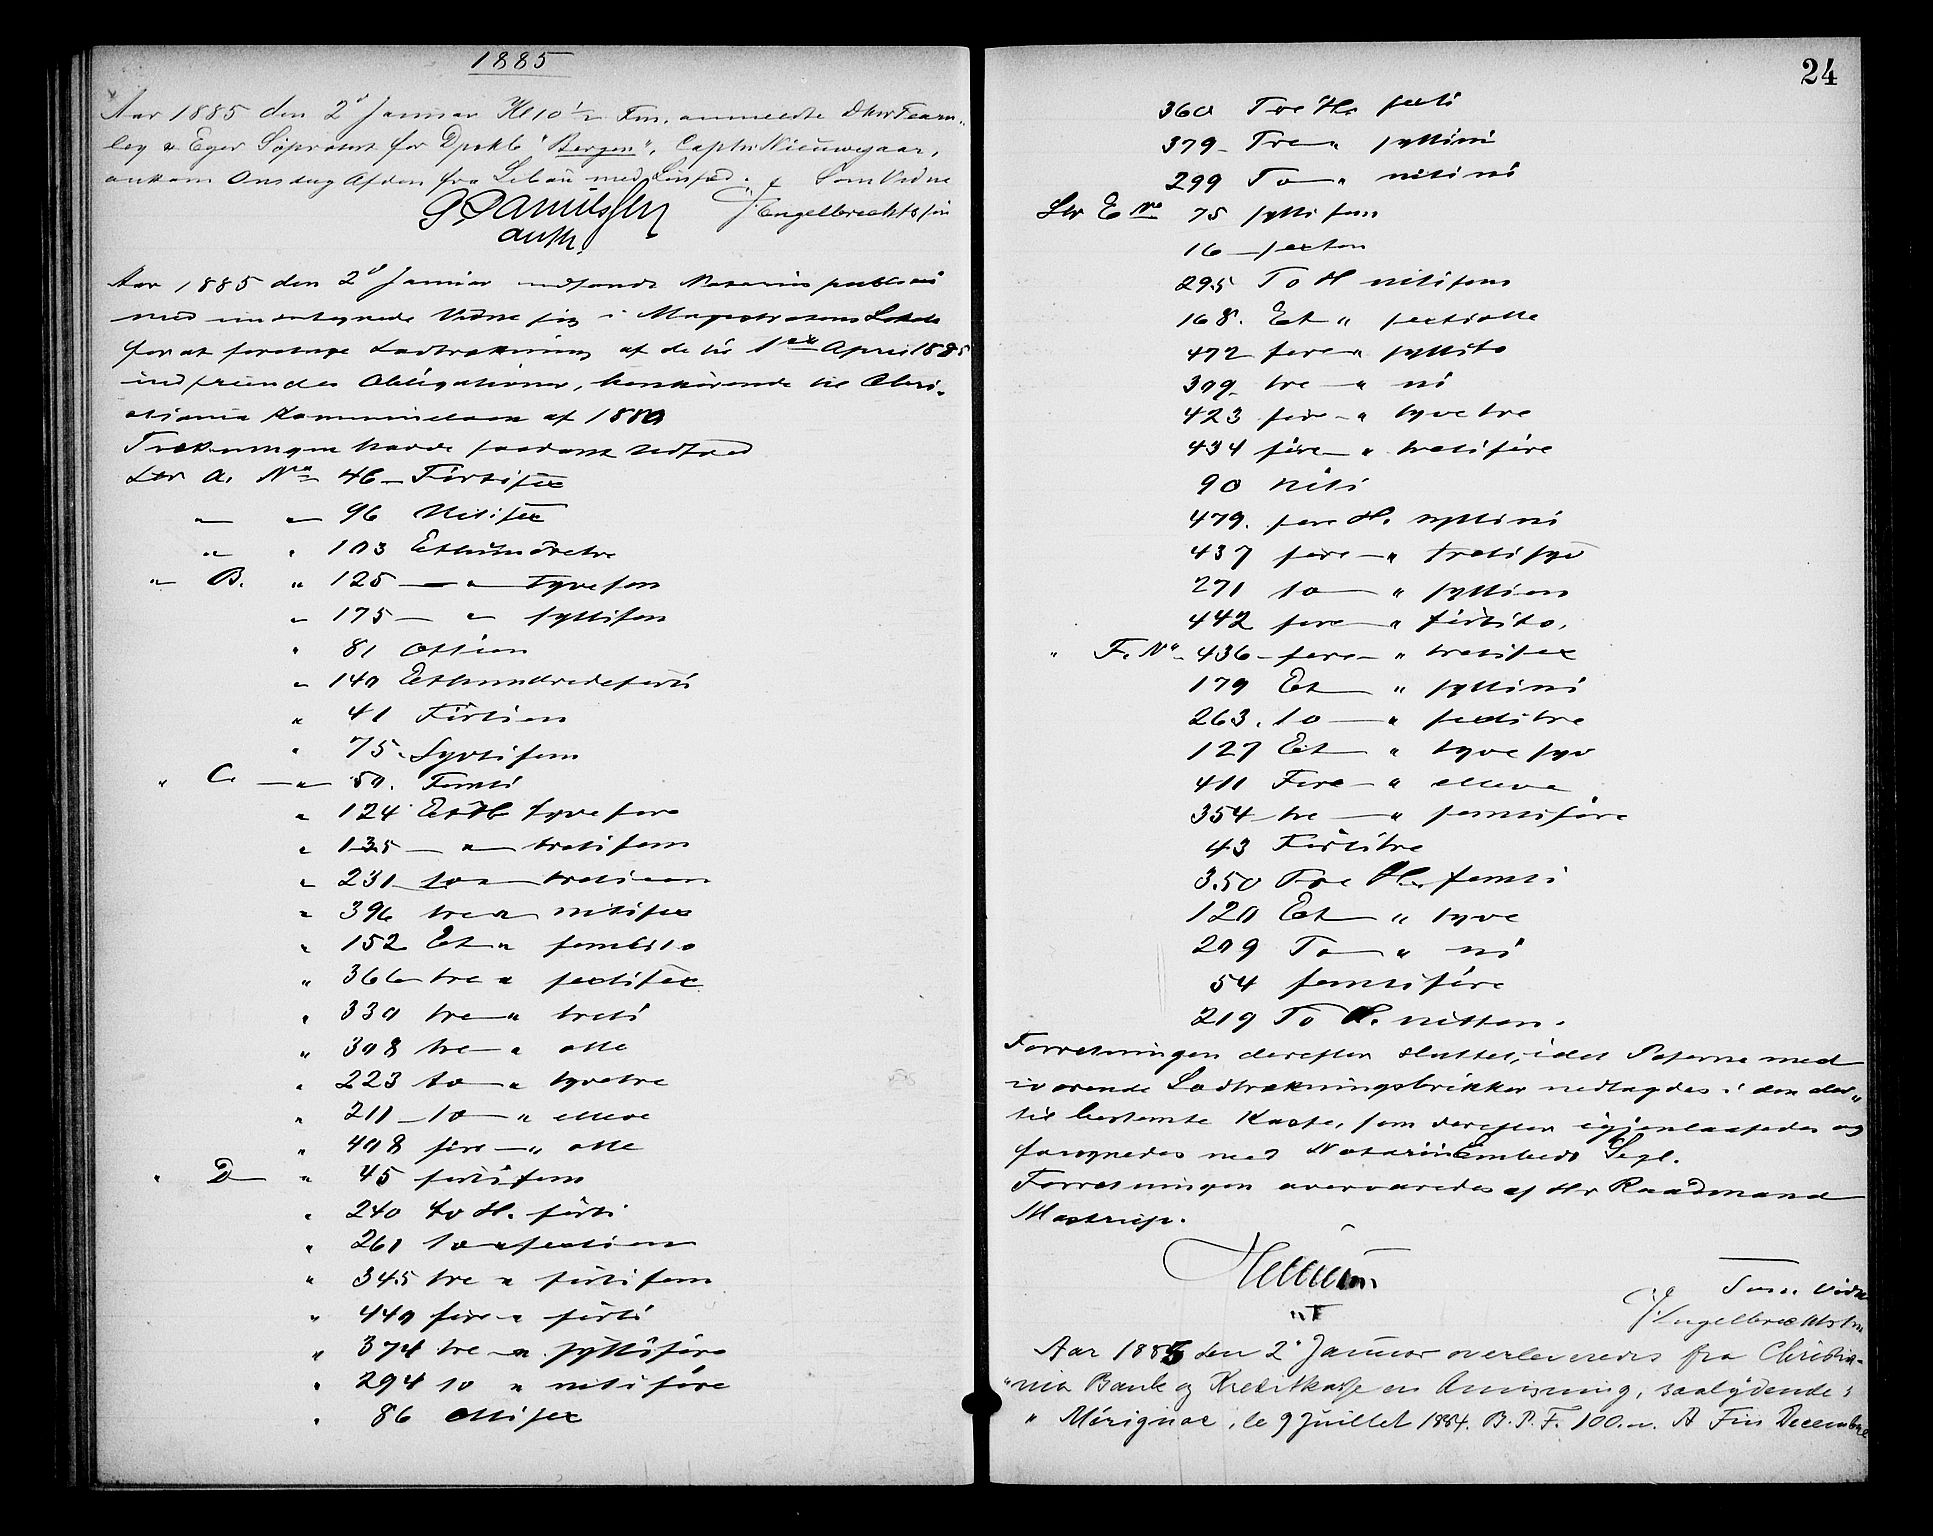 1885
Aar 1885 den 2' Januar Kl 10 1/2 Fm. anmeldte DHrr Fearn„
ley & Eger Søprotest for Dpskb "Bergen", Captn Nieuwejaar,
ankom Onsdag Aften fra Libau med Linfrø.
Som Vidne
Engelbrechtsen
Aar 1885 den 2' Januar indfandt Notarius publicus
med undertegnede Vidne sig i Magistratens Lokale
for at foretage Lodtrækning af de til 1ste April 1885
indfriendes Obligationer, henhørende til Chri-
stiania Kommunelaan af 1880
Trækningen havde saadant Udfald
Ltr A. No 46 - Førtisex
„ „ 96 Nitisex
„ „ 103 Ethundretre
„ B. „ 125 — „ — tyvefem
„ 175 — „ — syttifem
„ 81 ottien
„ 140 Ethundredeførti
„ 41 Førtien
„ 75. Syttifem
„ C. — „ — 50. Femti
„ 124 Et H tyvefire
„ 135 — „ — tretifem
„ 231 to „ tretien
„ 396 tre „ nitisex
„ 152 Et „ femtito
„ 366 tre „ sextisex
„ 330 tre — „ treti
„ 308 tre — „ otte
„ 223 to — „ tyvetre
„ 211 — to — „ elleve
„ 408 fire — „ otte
„ D — „ 45 førtifem
„ 240 to H. førti
„ 261 to „ sextien
„ 345 tre „ førtifem
„ 440 fire „ førti
„ 374 tre — „ syttifire
„ 294 to „ nitifire
„ 86 ottisex
24
360 Tre H. sexti
379 - Tre „ syttini
299 To — „ nitini
Ltr E No 75 syttifem
16 — sexten
295 To H nitifem
168. Et „ sextiotte
472 fire „ syttito
309 - tre — „ ni
423 fire — „ tyvetre
434 fire — „ tretifire
90 niti
479. fire H. syttini
437 fire — „ tretisyv
271 to — „ syttien
442 fire — „ førtito.
„ F. No - 436 - fire — „ tretisex
179 Et — „ syttini
263. to — „ sextitre
127 Et — „ tyvesyv
411 Fire — „ elleve
354 tre — „ femtifire
43 Førtitre
350 Tre H. femti
120 Et — „ tyve
209 To — „ ni
54 femtifire
219 To H. nitten.
Forretningen derefter sluttet, idet Poserne med
iværende Lodtrækningsbrikker nedlagdes i den der„
til bestemte Kasse, som derefter igjenlaasedes og
forsynedes med Notarii Embeds Segl.
Forretningen overværedes af Hr Raadmand
Mastrup.
Som Vidne
Engelbrechtsen
Aar 1885 den 2' Januar overleveredes fra Christia-
„nia Bank og Kreditkasse en Anvisning, saalydende:
„ Mérignac, le 9 Juillet 1884. B. P. F. 100.„. A Fin Decembre